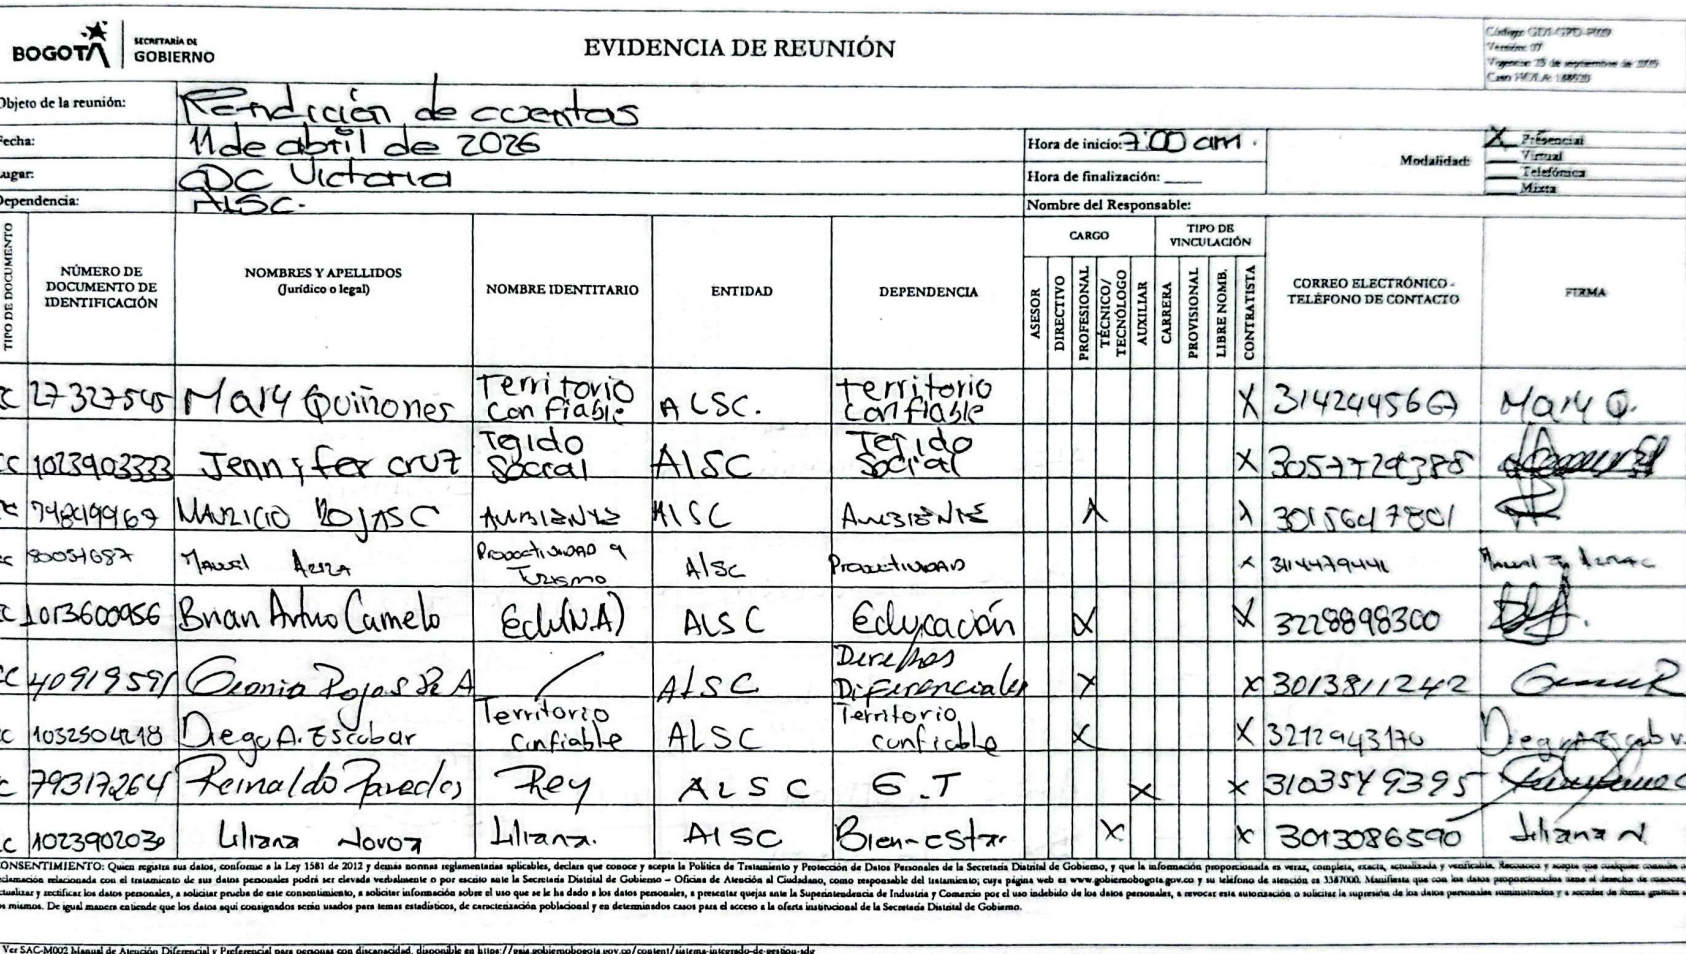 BOGOTÁ
SECRETARÍA DE
GOBIERNO
EVIDENCIA DE REUNIÓN
Código: GDI-GPD-F029
Versión: 07
Vigencia: 25 de septiembre de
Caso HOLA:
Objeto de la reunión: Rendición de cuentas
Fecha: 11 de abril de 2026
Hora de inicio: 7:00 am.
Modalidad:
X Presencial
Virtual
Telefónica
Mixta
Lugar: CDC Victoria
Hora de finalización:
Dependencia: ALSC.
Nombre del Responsable:
TIPO DE DOCUMENTO
NÚMERO DE DOCUMENTO DE IDENTIFICACIÓN
NOMBRES Y APELLIDOS
(Jurídico o legal)
NOMBRE IDENTITARIO
ENTIDAD
DEPENDENCIA
CARGO
ASESOR
DIRECTIVO
PROFESIONAL
TÉCNICO/ TECNÓLOGO
AUXILIAR
TIPO DE VINCULACIÓN
CARRERA
PROVISIONAL
LIBRE NOMB.
CONTRATISTA
CORREO ELECTRÓNICO - TELÉFONO DE CONTACTO
FIRMA
CC 27327545 Mary Quiñones Territorio confiable ALSC. territorio confiable X 3142445667 Mary Q.
CC 1023903333 Jennifer cruz Tegido Soccal AlSC Tejido Social X
CC MAURICIO ROJAS C AMBIENTE AlSC AMBIENTE X X 3015647801
CC 80051687 Manuel Ariza Productividad y Turismo AlSC Productividad X 3114479441
CC 1013600956 Brian Arturo Camelo Edu(N.A) ALSC Educación X X 3228898300
CC 40919591 Rojas ALSC Derechos Diferenciales X X 3013811242
CC 1032504218 Diego A. Escobar Territorio Confiable ALSC Territorio confiable X X 3212943170 Diego A Escob V.
CC 79317264 Reinaldo Paredes Rey ALSC G.T X X 3103549395
CC 1023902030 Liliana Novoa Liliana. AlSC Bien-estar X X 3013086590 Liliana N.
CONSENTIMIENTO: Quien registra sus datos, conforme a la Ley 1581 de 2012 y demás normas reglamentarias aplicables, declara que conoce y acepta la Política de Tratamiento y Protección de Datos Personales de la Secretaría Distrital de Gobierno, y que la información proporcionada es veraz, completa, exacta, actualizada y verificable. Reconozco y acepto que cualquier consulta o
reclamación relacionada con el tratamiento de sus datos personales podrá ser elevada verbalmente o por escrito ante la Secretaría Distrital de Gobierno – Oficina de Atención al Ciudadano, como responsable del tratamiento; cuya página web es www.gobiernobogota.gov.co y su teléfono de atención es 3387000. Manifiesta que con los datos proporcionados tiene el derecho de conocer,
actualizar y rectificar los datos personales, a solicitar prueba de este consentimiento, a solicitar información sobre el uso que se le ha dado a los datos personales, a presentar quejas ante la Superintendencia de Industria y Comercio por el uso indebido de los datos personales, a revocar esta autorización o solicitar la supresión de los datos personales suministrados y a acceder de forma gratuita a
los mismos. De igual manera entiende que los datos aquí consignados serán usados para temas estadísticos, de caracterización poblacional y en determinados casos para el acceso a la oferta institucional de la Secretaría Distrital de Gobierno.
Ver SAC-M002 Manual de Atención Diferencial y Preferencial para personas con discapacidad, disponible en https://gaia.gobiernobogota.gov.co/content/sistema-integrado-de-gestion-sdg